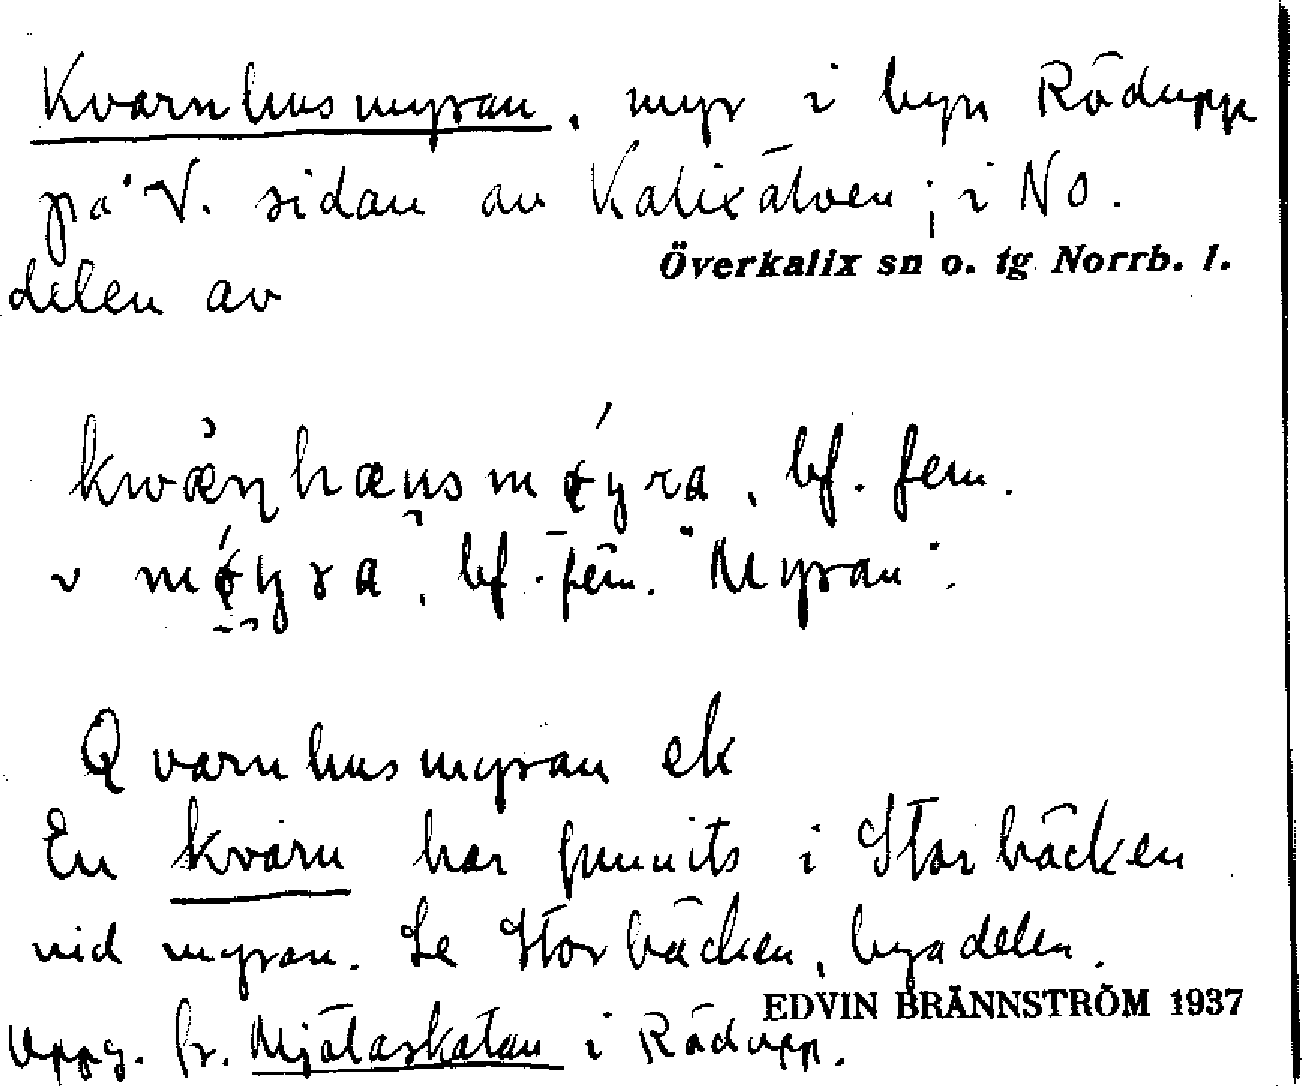 Kvarnhusmyran, myr i byn Rödupp
på V. sidan av Kalixälven; i NO.
Överkalix sn o. tg Norrb. l.
delen av
bf. fem.
v bf. fem. "Myran".
Qvarnhusmyran ek
En kvarn har funnits i Storbäcken
vid myran. Se Storbäcken, byadelen.
EDVIN BRÄNNSTRÖM 1937
Uppg. fr. i Rödupp.